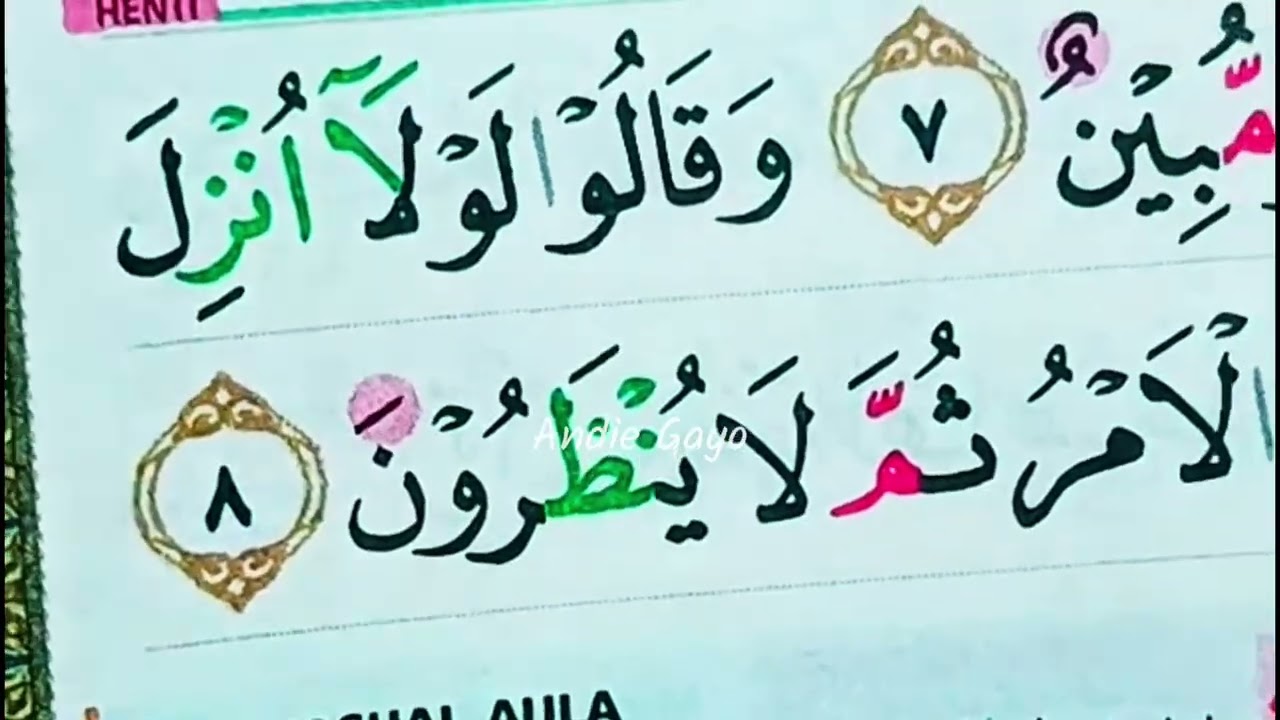 HENTI
مُّبِيْنٌ ٧ وَقَالُوْا لَوْلَآ اُنْزِلَ
الْاَمْرُ ثُمَّ لَا يُنْظَرُوْنَ ٨
Andie Gayo
AULA